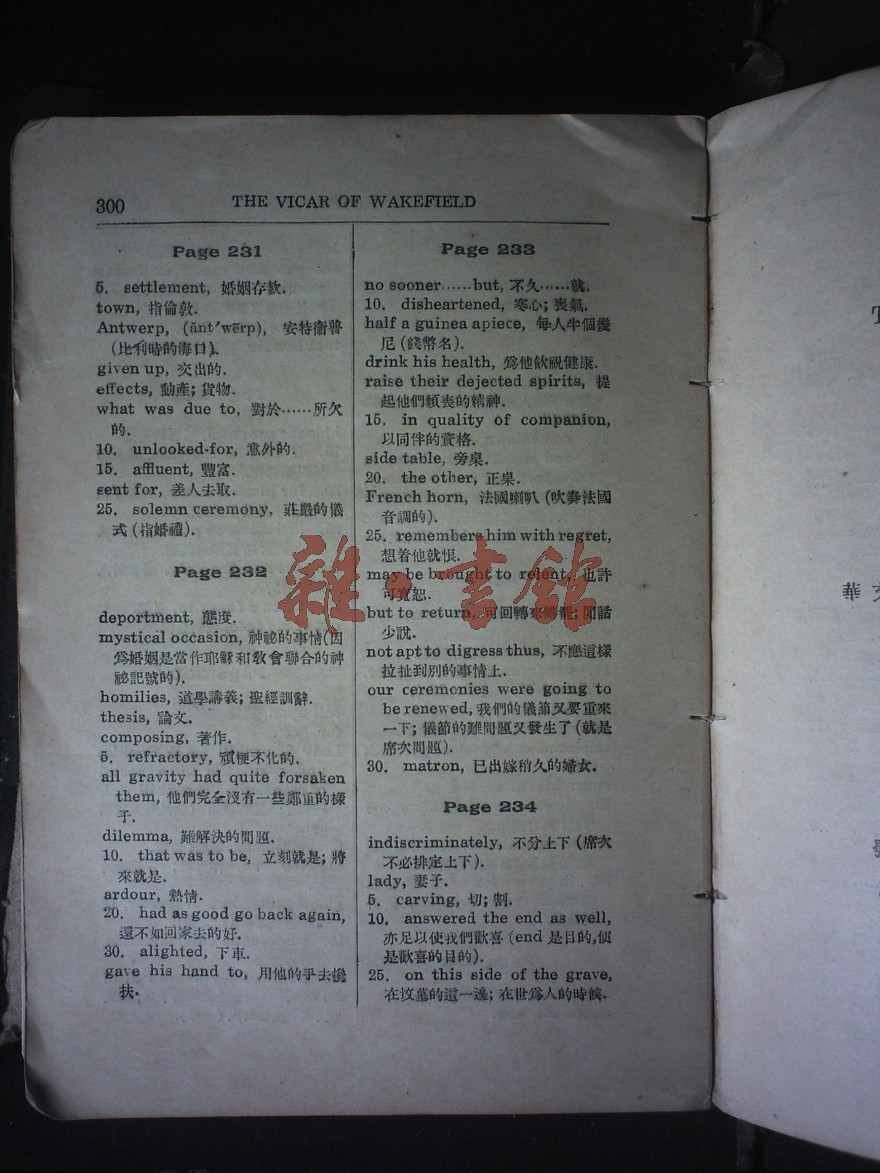 300
THE VICAR OF WAKEFIELD
Page 231
5. settlement, 婚姻存款.
town, 指倫敦.
Antwerp, (ănt′wẽrp), 安特衛普
(比利時的海口).
given up, 交出的.
effects, 動產; 貨物.
what was due to, 對於……所欠
的.
10. unlooked-for, 意外的.
15. affluent, 豐富.
sent for, 差人去取.
25. solemn ceremony, 莊嚴的儀
式 (指婚禮).
Page 232
deportment, 態度.
mystical occasion, 神祕的事情(因
爲婚姻是當作耶穌和教會聯合的神
祕記號的).
homilies, 道學講義; 聖經訓辭.
thesis, 論文.
composing, 著作.
5. refractory, 頑梗不化的.
all gravity had quite forsaken
them, 他們完全沒有一些鄭重的樣
子.
dilemma, 難解決的問題.
10. that was to be, 立刻就是; 將
來就是.
ardour, 熱情.
20. had as good go back again,
還不如回家去的好.
30. alighted, 下車.
gave his hand to, 用他的手去攙
扶.
Page 233
no sooner……but, 不久……就.
10. disheartened, 寒心; 喪氣.
half a guinea apiece, 每人半個幾
尼 (錢幣名).
drink his health, 爲他飲祝健康.
raise their dejected spirits, 提
起他們頹喪的精神.
15. in quality of companion,
以同伴的資格.
side table, 旁桌.
20. the other, 正桌.
French horn, 法國喇叭 (吹奏法國
音調的).
25. remembers him with regret,
想着他就恨.
may be brought to relent, 也許
可寬恕.
but to return, 可回轉來講罷; 閒話
少說.
not apt to digress thus, 不應這樣
拉扯到別的事情上.
our ceremonies were going to
be renewed, 我們的儀節又要重來
一下; 儀節的難問題又發生了 (就是
席次問題).
30. matron, 已出嫁稍久的婦女.
Page 234
indiscriminately, 不分上下 (席次
不必排定上下).
lady, 妻子.
5. carving, 切; 割.
10. answered the end as well,
亦足以使我們歡喜 (end 是目的,便
是歡喜的目的).
25. on this side of the grave,
在坟墓的這一邊; 在世爲人的時候.
雜·書館
華